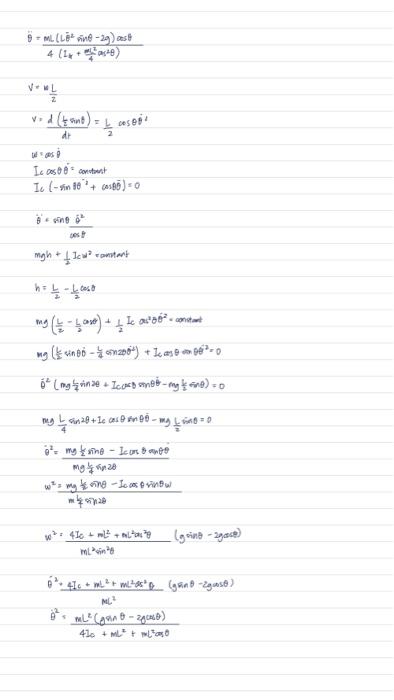 θ̈ = mL(Lθ̇² sinθ - 2g) cosθ / 4(I_c + mL²/4 cos²θ)
V = w L/2
V = d(L/2 sinθ)/dt = L/2 cosθ θ̇
w = cos θ̇
I_c cosθ θ̇ = constant
I_c (-sinθ θ̇² + cosθ θ̈) = 0
θ̈ = sinθ θ̇² / cosθ
mgh + 1/2 I_c w² = constant
h = L/2 - L/2 cosθ
mg (L/2 - L/2 cosθ) + 1/2 I_c cos²θ θ̇² = constant
mg (L/2 sinθ θ̇ - L/4 sin2θ θ̇²) + I_c cosθ sinθ θ̇² = 0
θ̇² (mg L/4 sin2θ + I_c cosθ sinθ θ̇ - mg L/2 sinθ) = 0
mg L/4 sin2θ + I_c cosθ sinθ θ̇ - mg L/2 sinθ = 0
θ̇² = mg L/2 sinθ - I_c cosθ sinθ θ̇ / mg L/4 sin2θ
w² = mg L/2 sinθ - I_c cosθ sinθ w / m L/4 sin2θ
w² = 4I_c + mL² + mL² cos²θ / mL² sin²θ (g sinθ - 2g cosθ)
θ̇² = 4I_c + mL² + mL² cos²θ / mL² (g sinθ - 2g cosθ)
θ̇² = mL² (g sinθ - 2g cosθ) / 4I_c + mL² + mL² cosθ